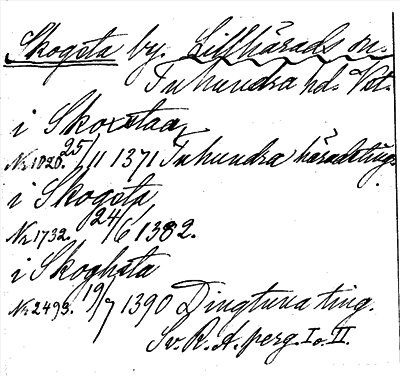 Skogsta by. Lillhärads sn.
Tuhundra hd. Vstm.
i Skoxstaa
Nr 1020. 25/11 1371 Tuhundra häradsting.
i Skogsta
Nr 1732. 24/6 1382.
i Skoghsta
Nr 2493. 19/7 1390 Dingtuna ting.
Sv. R. A. perg. I o. II.